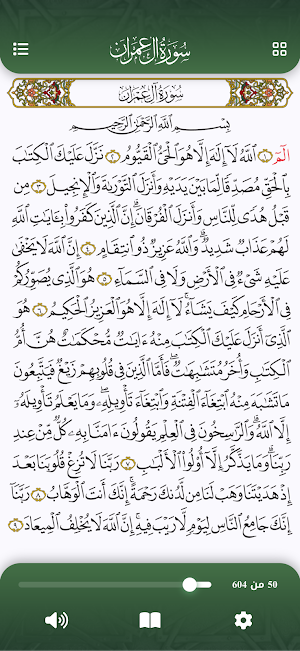 سُورَةُ آلِ عِمْرَانَ
سُورَةُ آلِ عِمْرَانَ
بِسْمِ اللَّهِ الرَّحْمَٰنِ الرَّحِيمِ
الٓمٓ ١ ٱللَّهُ لَآ إِلَٰهَ إِلَّا هُوَ ٱلۡحَيُّ ٱلۡقَيُّومُ ٢ نَزَّلَ عَلَيۡكَ ٱلۡكِتَٰبَ
بِٱلۡحَقِّ مُصَدِّقٗا لِّمَا بَيۡنَ يَدَيۡهِ وَأَنزَلَ ٱلتَّوۡرَىٰةَ وَٱلۡإِنجِيلَ ٣ مِن
قَبۡلُ هُدٗى لِّلنَّاسِ وَأَنزَلَ ٱلۡفُرۡقَانَۗ إِنَّ ٱلَّذِينَ كَفَرُواْ بِـَٔايَٰتِ ٱللَّهِ
لَهُمۡ عَذَابٞ شَدِيدٞۗ وَٱللَّهُ عَزِيزٞ ذُو ٱنتِقَامٍ ٤ إِنَّ ٱللَّهَ لَا يَخۡفَىٰ
عَلَيۡهِ شَيۡءٞ فِي ٱلۡأَرۡضِ وَلَا فِي ٱلسَّمَآءِ ٥ هُوَ ٱلَّذِي يُصَوِّرُكُمۡ
فِي ٱلۡأَرۡحَامِ كَيۡفَ يَشَآءُۚ لَآ إِلَٰهَ إِلَّا هُوَ ٱلۡعَزِيزُ ٱلۡحَكِيمُ ٦ هُوَ
ٱلَّذِيٓ أَنزَلَ عَلَيۡكَ ٱلۡكِتَٰبَ مِنۡهُ ءَايَٰتٞ مُّحۡكَمَٰتٌ هُنَّ أُمُّ
ٱلۡكِتَٰبِ وَأُخَرُ مُتَشَٰبِهَٰتٞۖ فَأَمَّا ٱلَّذِينَ فِي قُلُوبِهِمۡ زَيۡغٞ فَيَتَّبِعُونَ
مَا تَشَٰبَهَ مِنۡهُ ٱبۡتِغَآءَ ٱلۡفِتۡنَةِ وَٱبۡتِغَآءَ تَأۡوِيلِهِۦۖ وَمَا يَعۡلَمُ تَأۡوِيلَهُۥٓ
إِلَّا ٱللَّهُۗ وَٱلرَّٰسِخُونَ فِي ٱلۡعِلۡمِ يَقُولُونَ ءَامَنَّا بِهِۦ كُلّٞ مِّنۡ عِندِ
رَبِّنَاۗ وَمَا يَذَّكَّرُ إِلَّآ أُوْلُواْ ٱلۡأَلۡبَٰبِ ٧ رَبَّنَا لَا تُزِغۡ قُلُوبَنَا بَعۡدَ
إِذۡ هَدَيۡتَنَا وَهَبۡ لَنَا مِن لَّدُنكَ رَحۡمَةًۚ إِنَّكَ أَنتَ ٱلۡوَهَّابُ ٨ رَبَّنَآ
إِنَّكَ جَامِعُ ٱلنَّاسِ لِيَوۡمٖ لَّا رَيۡبَ فِيهِۚ إِنَّ ٱللَّهَ لَا يُخۡلِفُ ٱلۡمِيعَادَ ٩
50 من 604